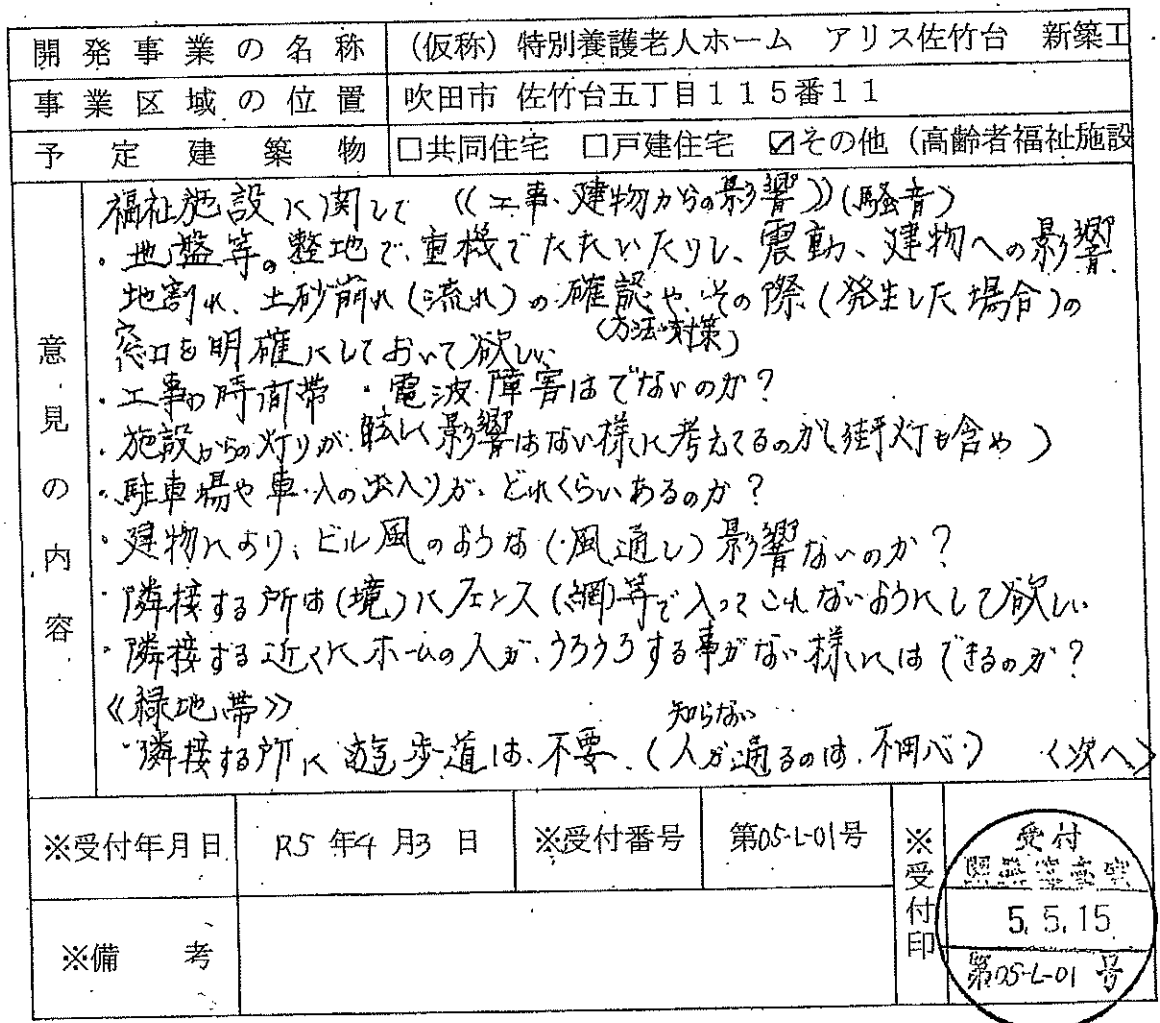 開発事業の名称 (仮称)特別養護老人ホーム アリス佐竹台 新築工
事業区域の位置 吹田市 佐竹台五丁目115番11
予定建築物 □共同住宅 □戸建住宅 ☑その他(高齢者福祉施設
意見の内容
福祉施設に関して 《工事、建物からの影響》(騒音)
・地盤等。整地で、重機でたたいたりし、震動、建物への影響、
地割れ、土砂崩れ(流れ)の確認や、その際(発生した場合)の
(方法・対策)
窓口を明確にしておいて欲しい
・工事の時間帯 ・電波障害はでないのか?
・施設からの灯りが、眩しく影響はない様に考えてるのか(街灯も含め)
・駐車場や車・人の出入りが、どれくらいあるのか?
・建物により、ビル風のような(風通し)影響ないのか?
・隣接する所は(境)にフェンス(網)等で入ってこれないようにして欲しい
・隣接する近くにホームの人が、うろうろする事がない様にはできるのか?
《緑地帯》
知らない
・隣接する所に遊歩道は、不要、(人が通るのは、不用心) 〈次へ〉
※受付年月日 R5年4月3日 ※受付番号 第05-L-01号 ※受付印
受付
5.5.15
第05-L-01号
※備考